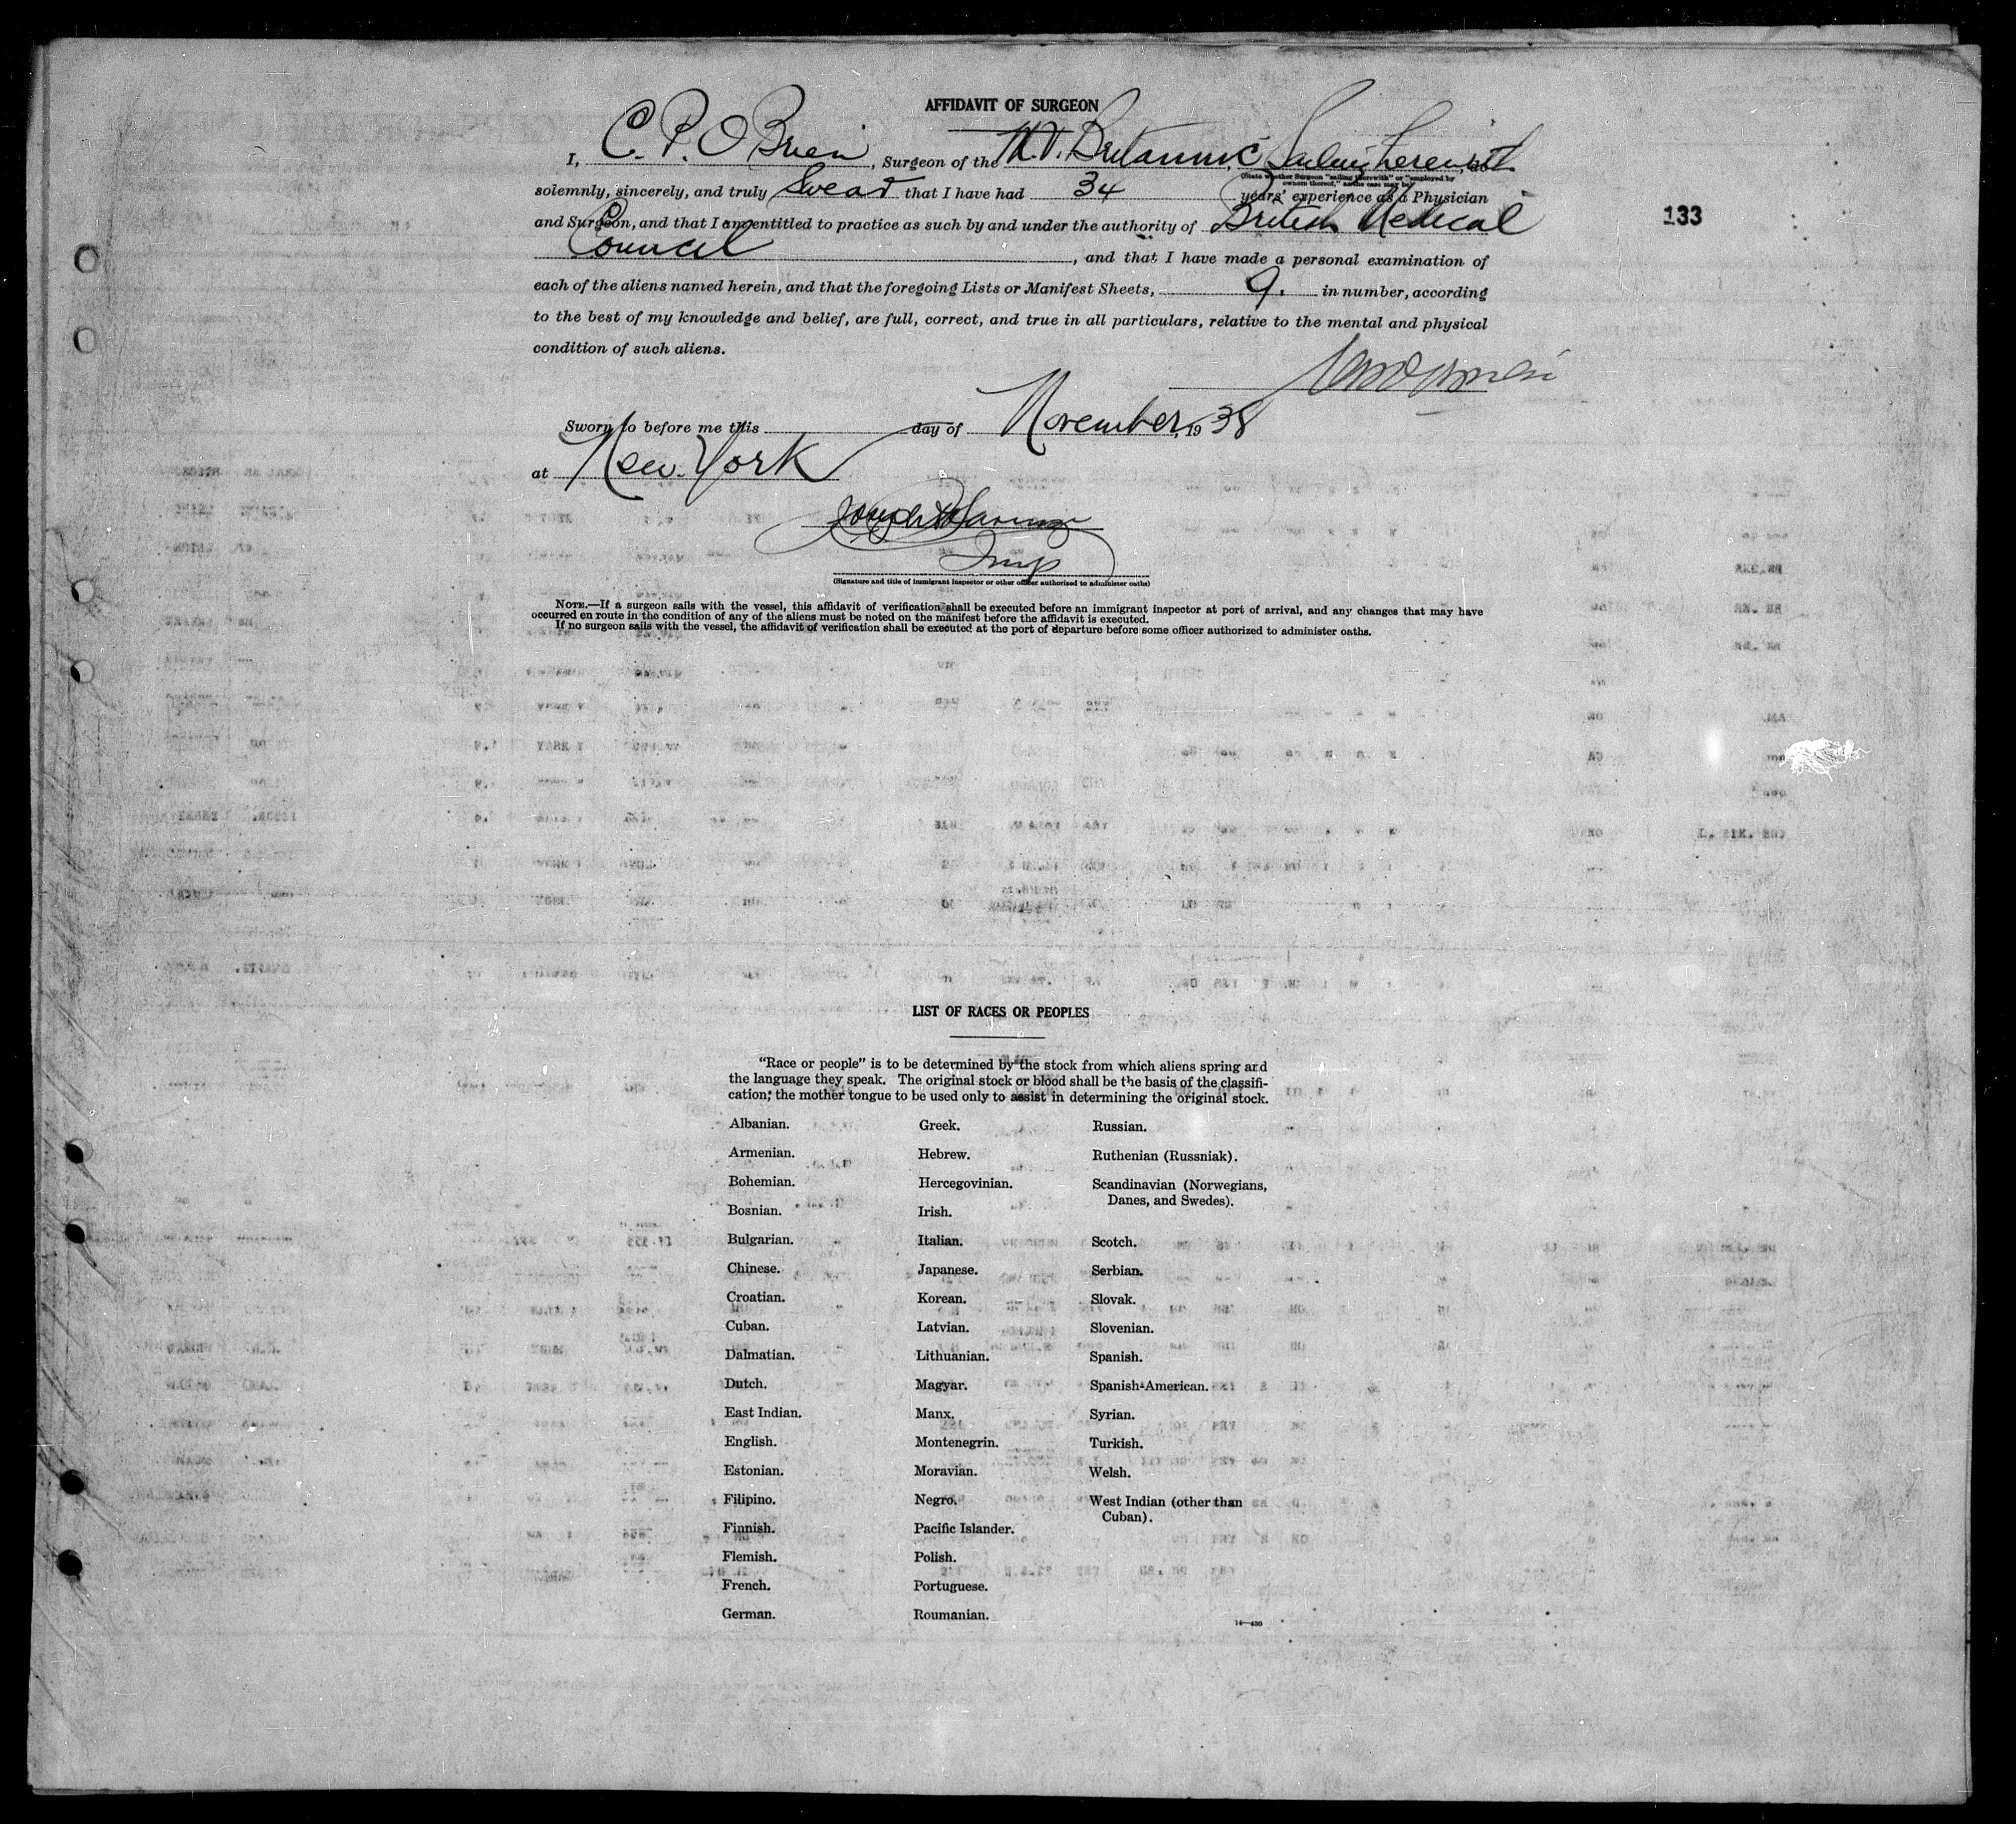 AFFIDAVIT OF SURGEON
I, C. P. O'Brien, Surgeon of the M.V. Britannic, Sailing therewith, do
(State whether Surgeon "sailing therewith" or "employed by
owners thereof," as the case may be)
solemnly, sincerely, and truly swear that I have had 34 years' experience as a Physician
and Surgeon, and that I am entitled to practice as such by and under the authority of British Medical
133
Council, and that I have made a personal examination of
each of the aliens named herein, and that the foregoing Lists or Manifest Sheets, 9. in number, according
to the best of my knowledge and belief, are full, correct, and true in all particulars, relative to the mental and physical
condition of such aliens.
Sworn to before me this day of November, 1938
at New York
Insp
(Signature and title of immigrant inspector or other officer authorized to administer oaths)
NOTE.—If a surgeon sails with the vessel, this affidavit of verification shall be executed before an immigrant inspector at port of arrival, and any changes that may have
occurred en route in the condition of any of the aliens must be noted on the manifest before the affidavit is executed.
If no surgeon sails with the vessel, the affidavit of verification shall be executed at the port of departure before some officer authorized to administer oaths.
LIST OF RACES OR PEOPLES
"Race or people" is to be determined by the stock from which aliens spring and
the language they speak. The original stock or blood shall be the basis of the classifi-
cation; the mother tongue to be used only to assist in determining the original stock.
Albanian.
Armenian.
Bohemian.
Bosnian.
Bulgarian.
Chinese.
Croatian.
Cuban.
Dalmatian.
Dutch.
East Indian.
English.
Estonian.
Filipino.
Finnish.
Flemish.
French.
German.
Greek.
Hebrew.
Hercegovinian.
Irish.
Italian.
Japanese.
Korean.
Latvian.
Lithuanian.
Magyar.
Manx.
Montenegrin.
Moravian.
Negro.
Pacific Islander.
Polish.
Portuguese.
Roumanian.
Russian.
Ruthenian (Russniak).
Scandinavian (Norwegians,
Danes, and Swedes).
Scotch.
Serbian.
Slovak.
Slovenian.
Spanish.
Spanish-American.
Syrian.
Turkish.
Welsh.
West Indian (other than
Cuban).
14—430